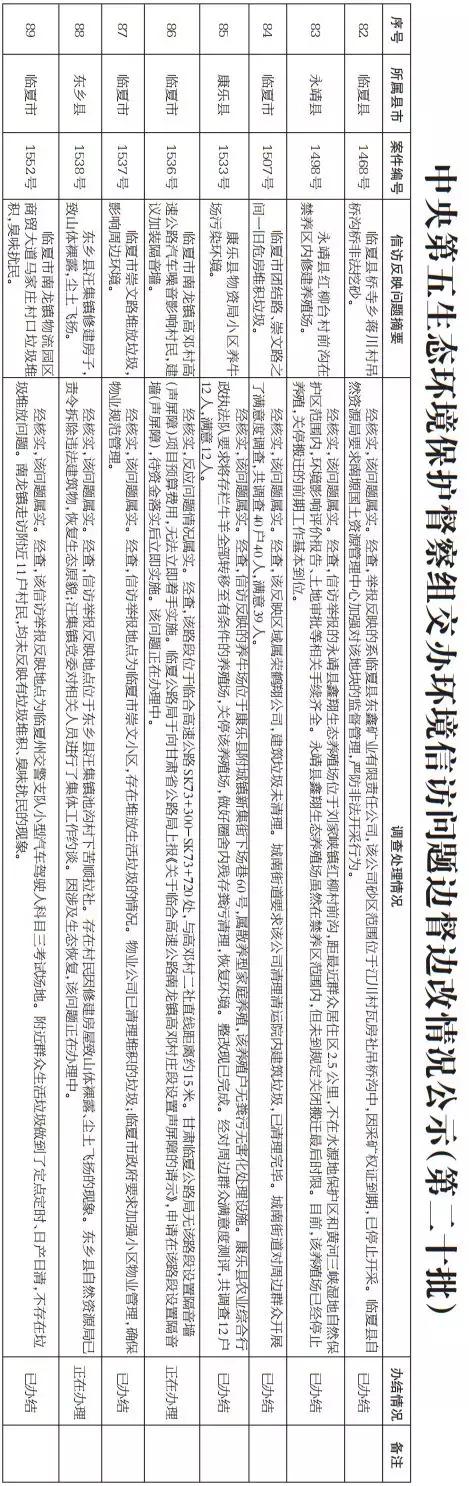 中央第五生态环境保护督察组交办环境信访问题边督边改情况公示(第二十批)
序号 所属县市 案件编号 信访反映问题摘要 调查处理情况 办结情况 备注
82 临夏县 1468号
临夏县桥寺乡蒋川村吊
桥沟桥非法挖砂。
经核实,该问题属实。经查,举报反映的系临夏县东鑫矿业有限责任公司,该公司砂区范围位于江川村瓦房社吊桥沟中,因采矿权证到期,已停止开采。临夏县自
然资源局要求南塬国土资源管理中心加强对该地块的监督管理,严防非法开采行为。
已办结
83 永靖县 1498号
永靖县红柳台村前沟在
禁养区内修建养殖场。
经核实,该问题属实。经查,信访举报的永靖县鑫翔生态养殖场位于刘家峡镇红柳村前沟,距最近群众居住区2.5公里,不在水源地保护区和黄河三峡湿地自然保
护区范围内,环境影响评价报告、土地审批等相关手续齐全。永靖县鑫翔生态养殖场虽然在禁养区范围内,但未到规定关闭搬迁最后时限。目前,该养殖场已经停止
养殖,关停搬迁的前期工作基本到位。
已办结
84 临夏市 1507号
临夏市团结路、崇文路之
间一旧危房堆积垃圾。
经核实,该问题属实。经查,该反映区域属荣鹤翔公司,建筑垃圾未清理。城南街道要求该公司清理清运院内建筑垃圾,已清理完毕。城南街道对周边群众开展
了满意度调查,共调查40户40人,满意39人。
已办结
85 康乐县 1533号
康乐县物资局小区养牛
场污染环境。
经核实,该问题属实。经查,信访反映的养牛场位于康乐县附城镇新集街下场巷60号,属散养型家庭养殖,该养殖户无粪污无害化处理设施。康乐县农业综合行
政执法队要求将存栏牛羊全部转移至有条件的养殖场,关停该养殖场,做好圈舍内残存粪污清理,恢复环境。整改现已完成。经对周边群众满意度测评,共调查12户
12人,满意12人。
已办结
86 临夏市 1536号
临夏市南龙镇高邓村高
速公路汽车噪音影响村民,建
议加装隔音墙。
经核实,反应问题情况属实。经查,该路段位于临合高速公路SK73+300-SK73+720处,与高邓村二社直线距离约15米。甘肃临夏公路局无该路段设置隔音墙
(声屏障)项目预算费用,无法立即着手实施。临夏公路局于向甘肃省公路局上报《关于临合高速公路南龙镇高邓村庄段设置声屏障的请示》,申请在该路段设置隔音
墙(声屏障),待资金落实后立即实施。该问题正在办理中。
正在办理
87 临夏市 1537号
临夏市崇文路堆放垃圾,
影响周边环境。
经核实,该问题属实。经查,信访举报地点为临夏市崇文小区,存在堆放生活垃圾的情况。物业公司已清理堆积的垃圾;临夏市政府要求加强小区物业管理,确保
物业规范管理。
已办结
88 东乡县 1538号
东乡县汪集镇修建房子,
致山体裸露,尘土飞扬。
经核实,该问题属实。经查,信访举报反映地点位于东乡县汪集镇池沟村下苦顺拉社。存在村民因修建房屋致山体裸露、尘土飞扬的现象。东乡县自然资源局已
责令拆除违法建筑物,恢复生态原貌;汪集镇党委对相关人员进行了集体工作约谈。因涉及生态恢复,该问题正在办理中。
正在办理
89 临夏市 1552号
临夏市南龙镇物流园区
商贸大道马家庄村口垃圾堆
积,臭味扰民。
经核实,该问题属实。经查,该信访举报反映地点为临夏州交警支队小型汽车驾驶人科目三考试场地。附近群众生活垃圾做到了定点定时、日产日清,不存在垃
圾堆放问题。南龙镇走访附近11户村民,均未反映有垃圾堆积、臭味扰民的现象。
已办结